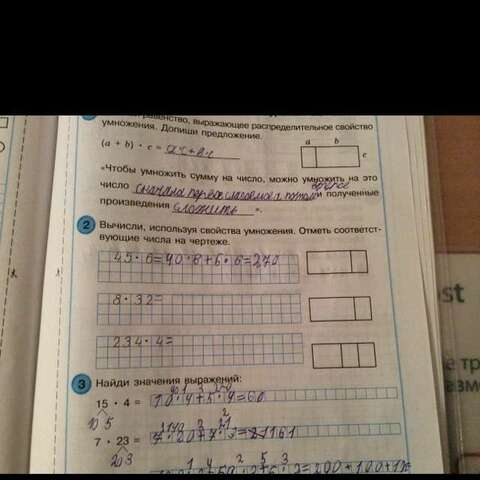 равенство, выражающее распределительное свойство
умножения. Допиши предложение.
(a + b) · c =
a b
c
«Чтобы умножить сумму на число, можно умножить на это
число сначала первое слагаемое, а потом второе и полученные
произведения сложить ».
2 Вычисли, используя свойства умножения. Отметь соответст-
вующие числа на чертеже.
45 · 6 = 40 · 6 + 5 · 6 = 270
8 · 32 =
234 · 4 =
3 Найди значения выражений:
15 · 4 = 10 · 4 + 5 · 4 = 60
10 5
7 · 23 = 7 · 20 + 7 · 3 = 161
20 3
st
е тр
азм